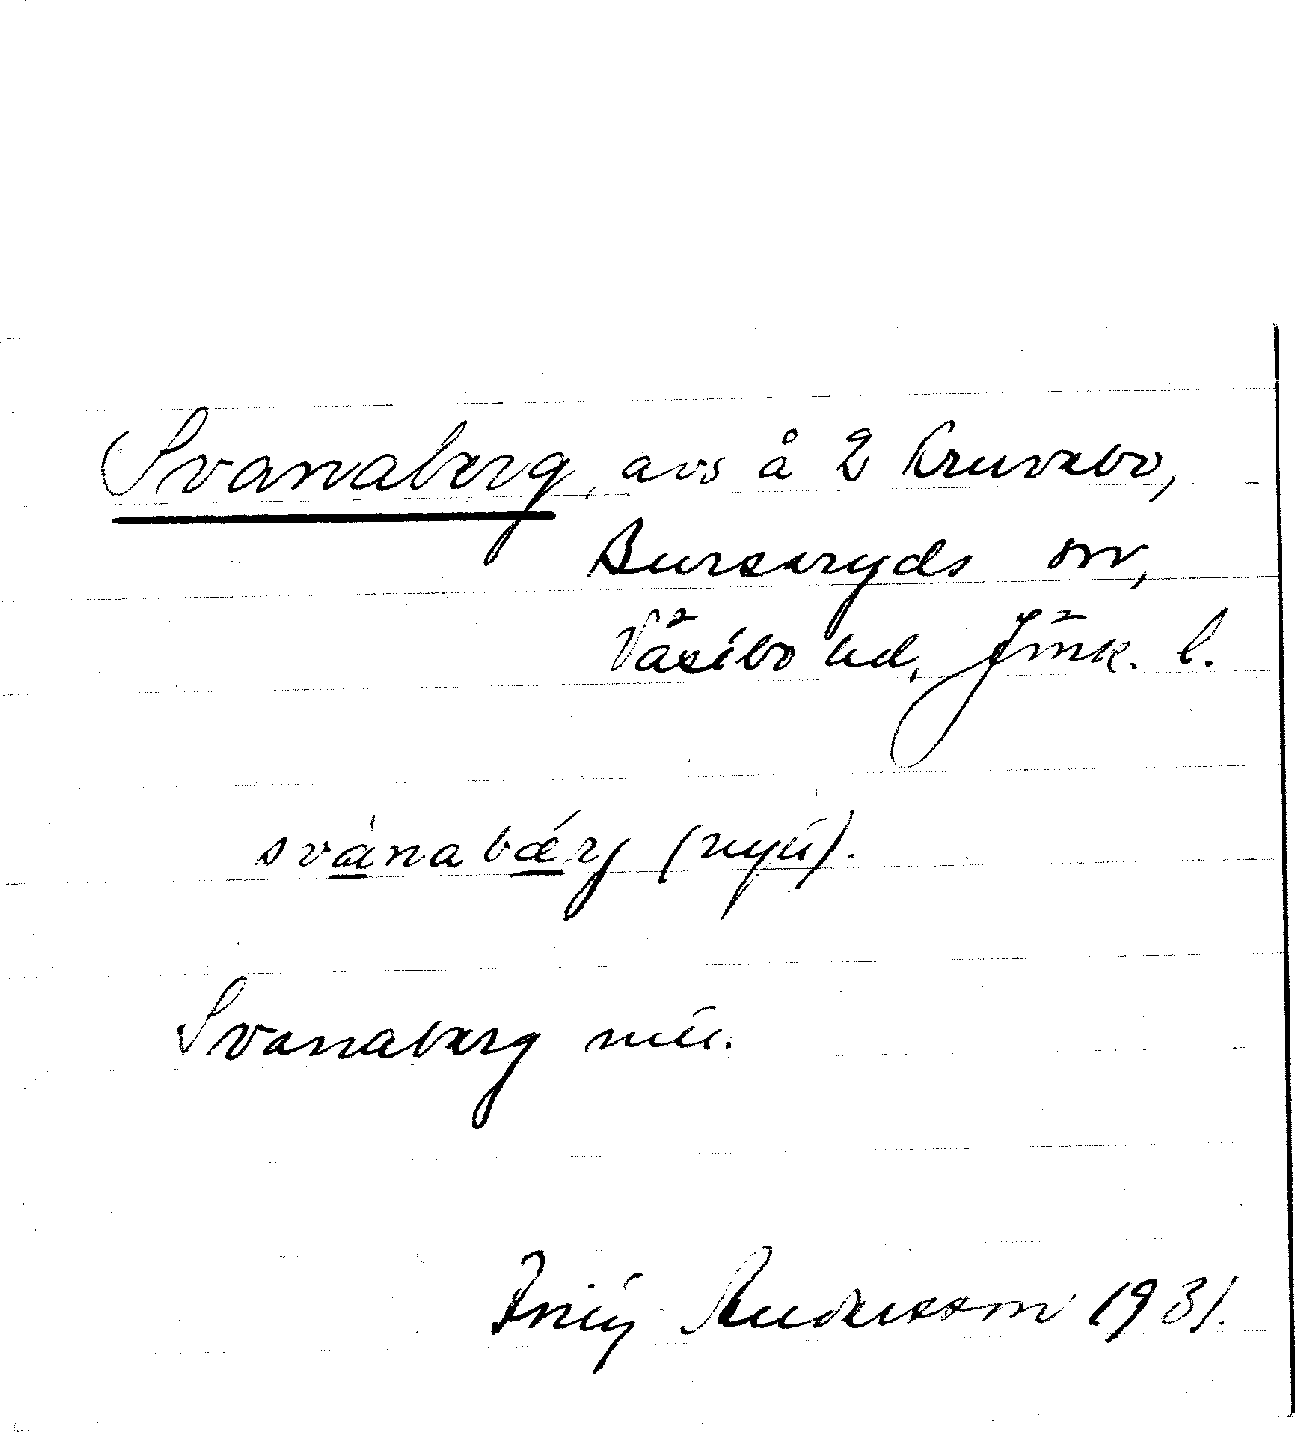 Svanaberg, avs å 2 Kruvebo,
Burseryds sn,
Västbo hd, Jönk. l.
svànabǽrj (nyú).
Svanaberg
Andersson 1931.